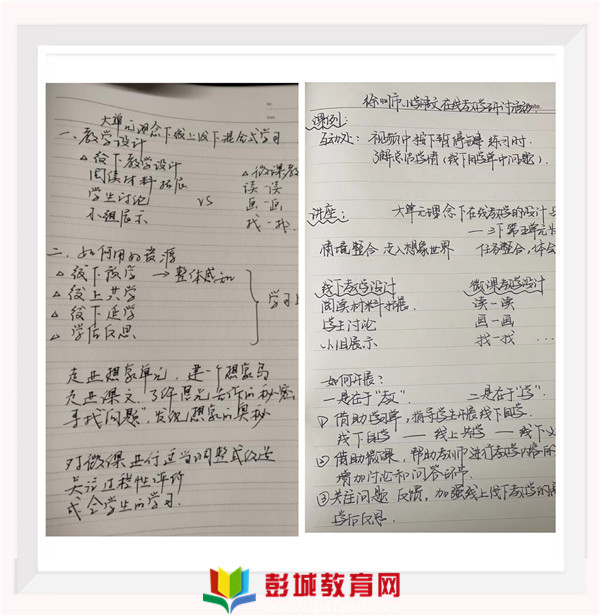 大单元理念下线上线下混合式学习
一、教学设计
△线下教学设计
阅读材料拓展
学生讨论
小组展示
vs
△微课教
读一读
画一画
找一找
二、如何用好资源
△线下预学 → 整体感知
△线上共学
△线下延学
△学后反思
学习
走进想象单元,建一个想象岛
走进课文,了解
寻找问题",发现想象的奥秘
对微课进行适当调整或改造
关注过程性评价
学生的学习.
徐州市小学语文在线教学研讨活动
课例:
互动处: 视频中按下暂停键 练习时.
了解总结学情(线下自学单中问题).
讲座: 大单元理念下在线教学的设计与
——三下第五单元
情境整合 走入想象世界 任务整合,体会
线下教学设计 微课教学设计
阅读材料拓展. 读一读
学生讨论 画一画
小组展示 找一找 …
如何开展?
一是在于"教" 二是在于"学"
①借助学习单,指导学生开展线下自学.
线下自学 —— 线上共学 —— 线下
②借助微课,帮助教师进行教学内容的
增加讨论和问答环节.
③关注问题反馈,加强线上线下教学的
学后反思.
彭城教育网